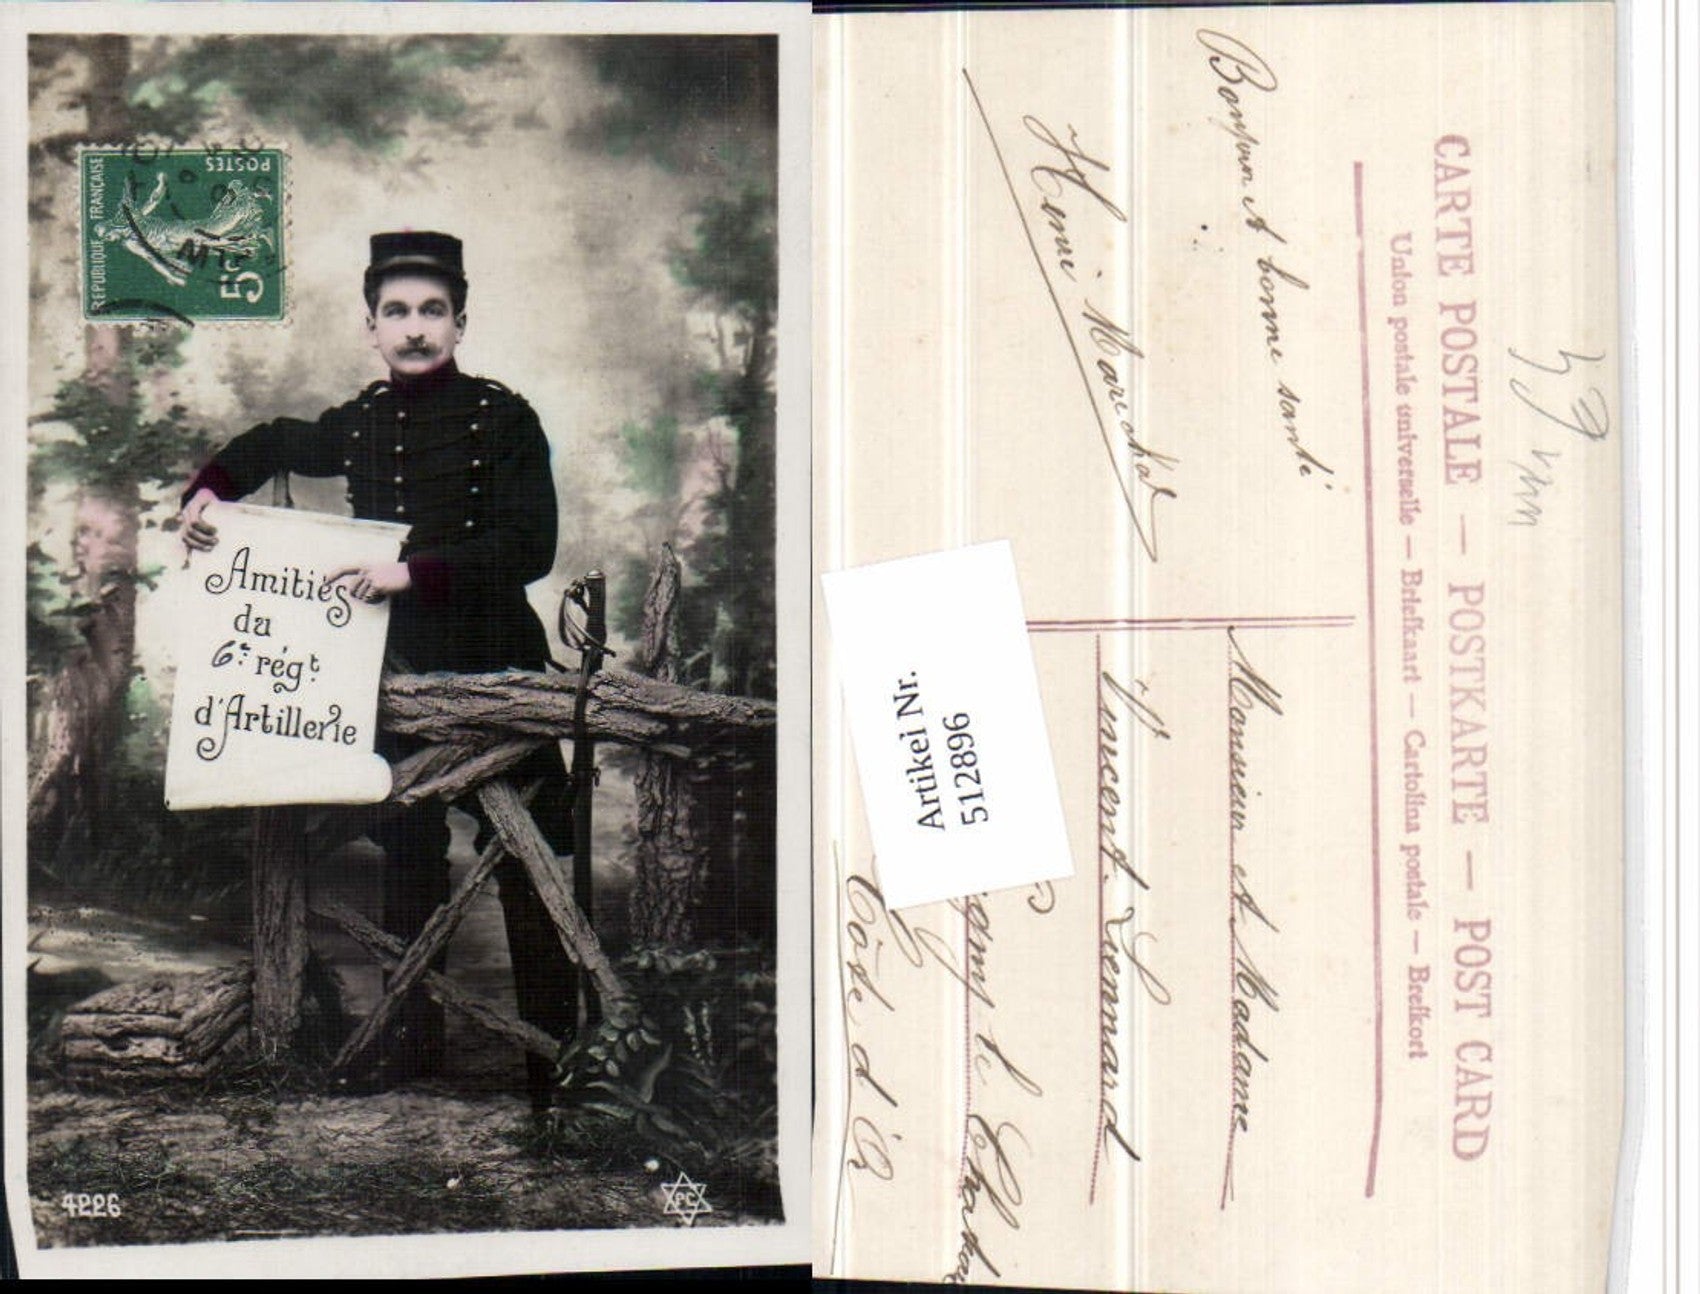 RÉPUBLIQUE FRANÇAISE
POSTES
5c
Amitiés
du
6e. régt
d'Artillerie
4226
PC
CARTE POSTALE — POSTKARTE — POST CARD
Union postale universelle — Briefkaart — Cartolina postale — Brefkort
Bonjour et bonne santé
Henri Marechal
Monsieur et Madame
Vincent Liennard
le
Côte d'Or
Artikel Nr.
5128896